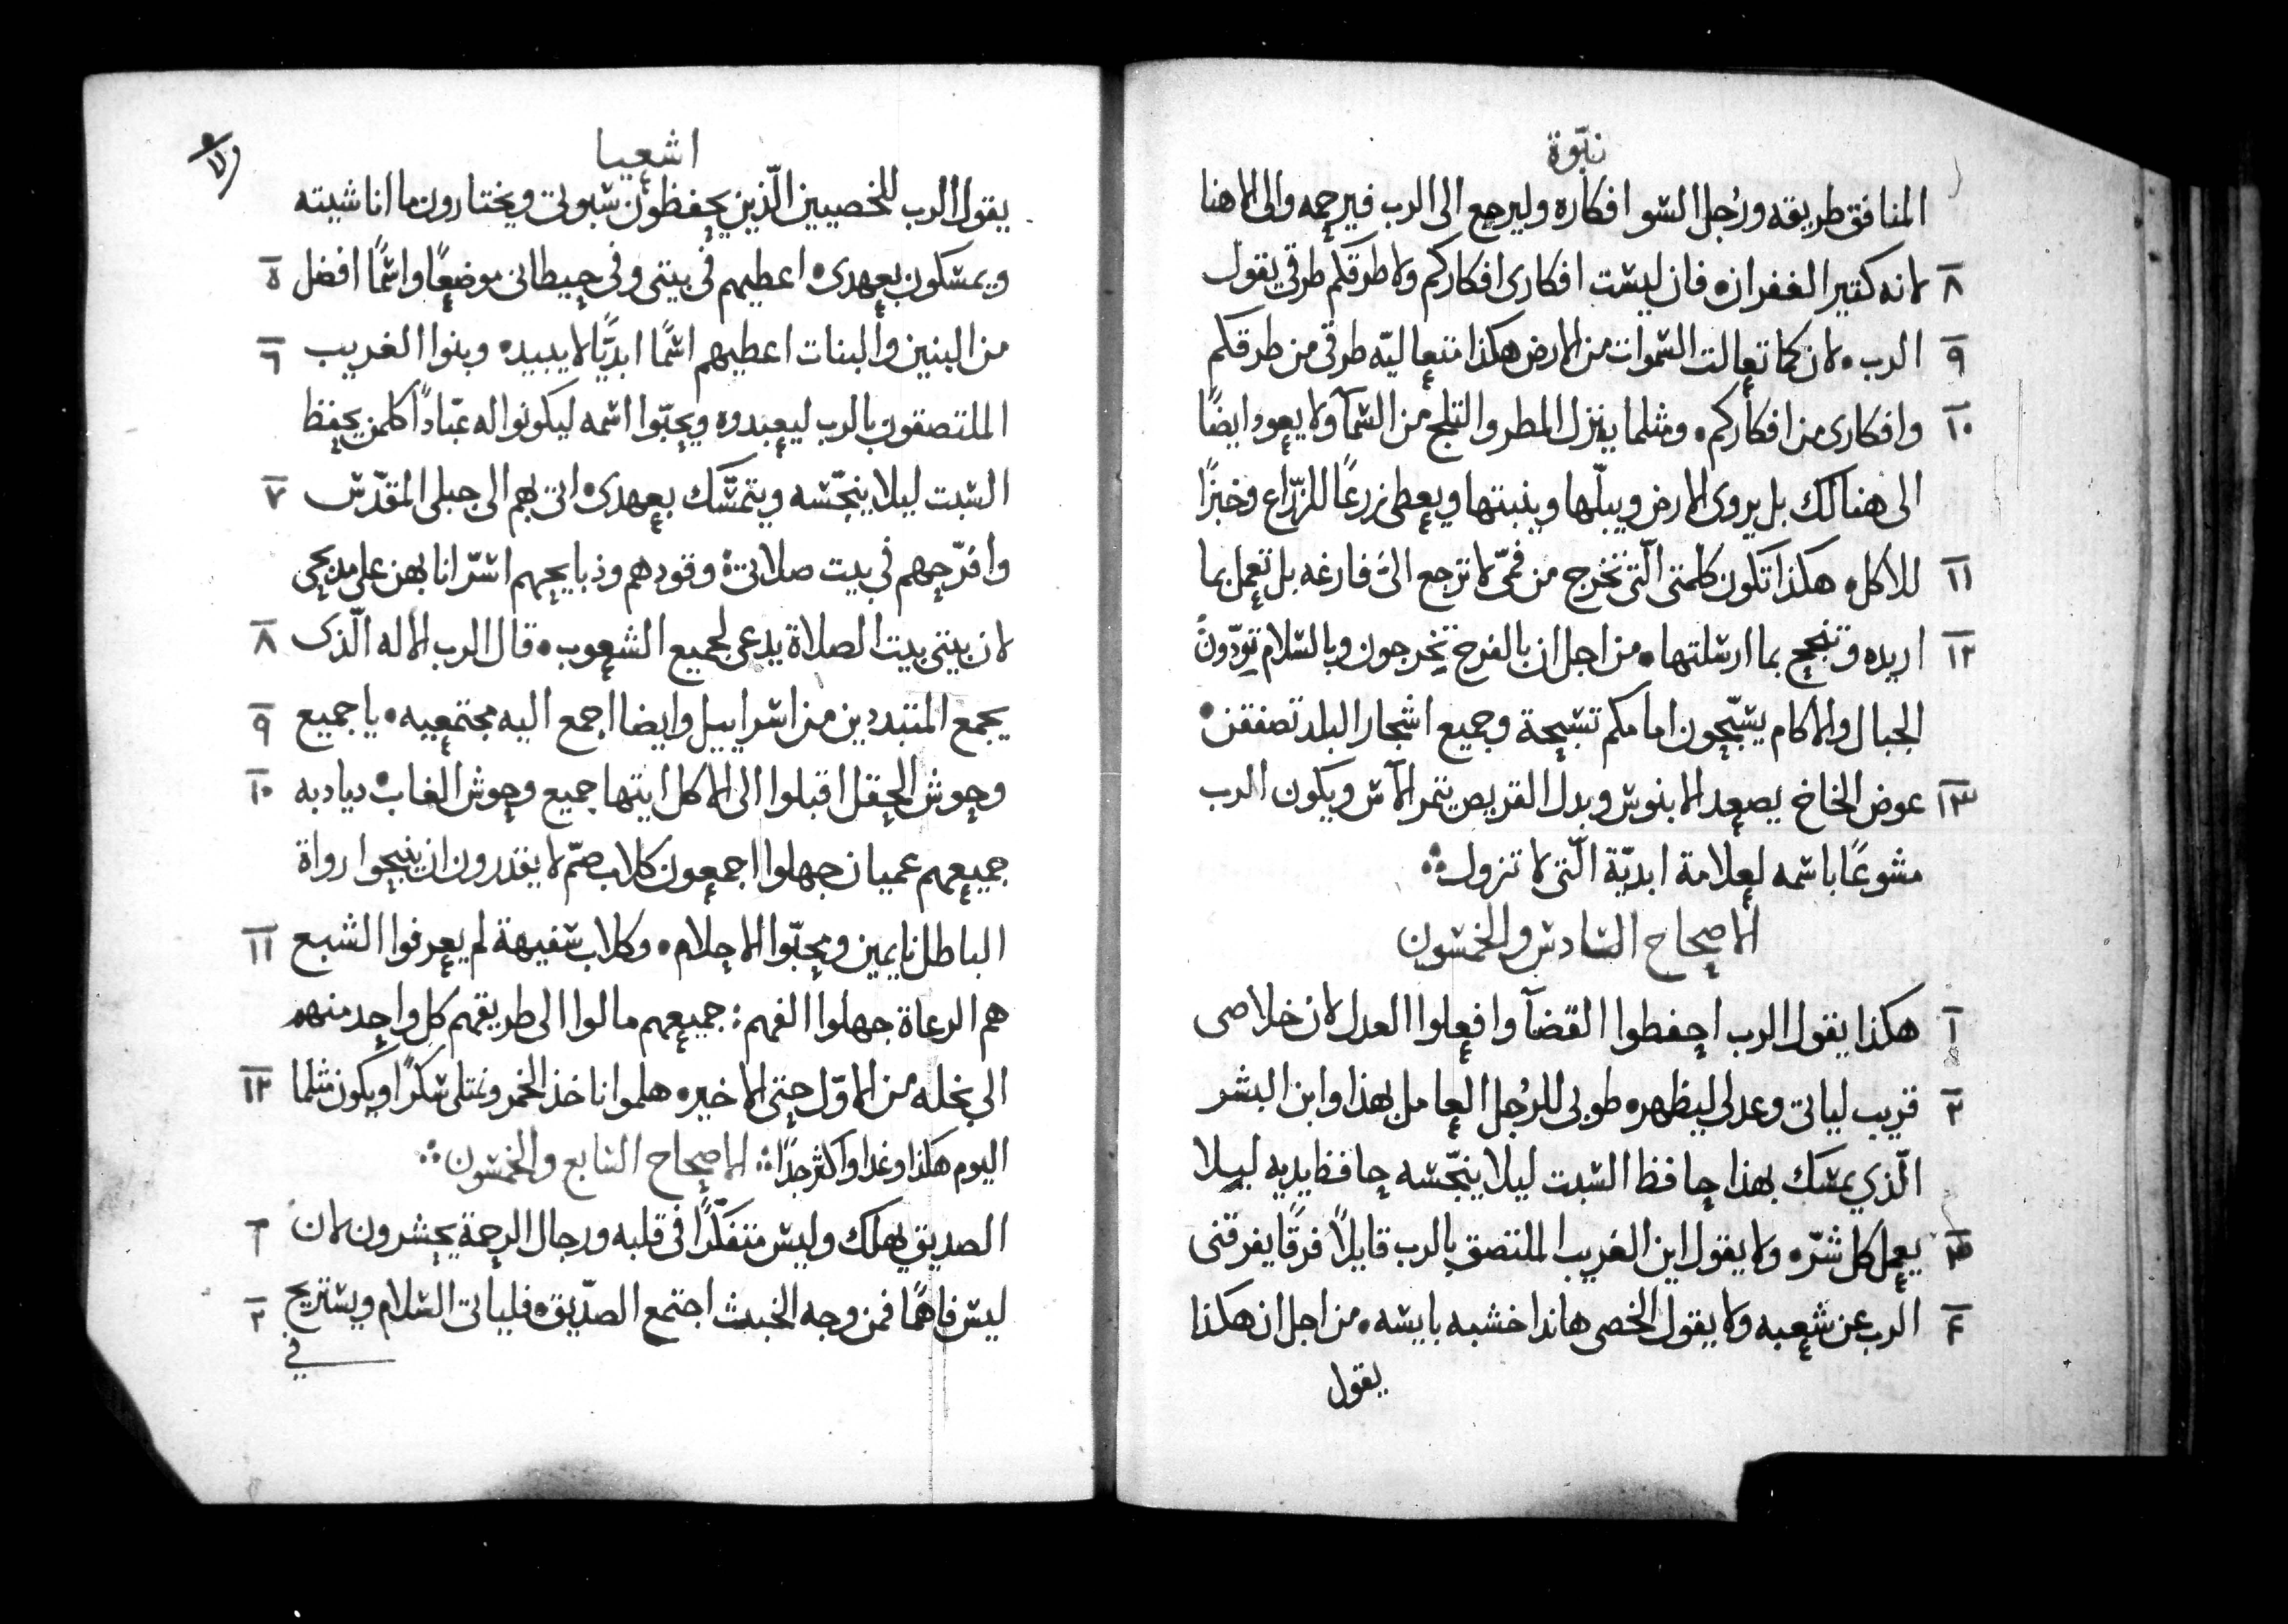 نبّوة
المنافق طريقه ورُجل السو افكاره وليرجع الى الرب فيرحمه والى الاهنا
٨ لانه كثير الغفران٠ فان ليست افكارى افكاركم ولا طرقكم طرقي يقول
٩ الرب٠ لان كما تعالت السموات من الارض هكذا متعاليّه طرقى من طرقكم
١٠ وافكارى من افكاركم٠ ومثلما ينزل المطر والثلج من السمآ ولا يعود ايضًا
الى هنالك بل يروى الارض ويبلّها وينبتها ويعطى زرعًا للزرّاع وخبزًا
١١ للاكل٠ هكذا تكون كلمتى الّتى تخرج من فمّى لا ترجع الىّ فارغه بل تعمل بما
١٢ اريده وتنجح بما ارسلتها٠ من اجل ان بالفرح تخرجون وبالسلام تتودّون
الجبال والاكام يسبّحون امامكم تسبحة وجميع اشجار البلد تصفقن٠
١٣ عوض الخاخ يصعد الابنوس وبدل القريص يتمر الآس ويكون الرب
مشوعًا باسمه لعلامة ابديّة الّتى لا تزول
الاصحاح السادس والخمسون
١ هكذا يقول الرب احفطوا القضآ وافعلوا العدل لان خلاصى
٢ قريب لياتى وعدلى ليظهر٠ طوبى للرُجل العامل بهذا وابن البشر
الّذي يمسك بهذا حافظ السبت ليلا ينجّسه حافظ يديه ليلا
٣ يعمل كل شرّ٠ ولا يقول ابن الغريب الملتصق بالرب قايلاً فرقًا يفرقنى
٤ الرب عن شعبه ولا يقول الخصى هانذا خشبه يابسه٠ من اجل ان هكذا
يقول
اشعيا
يقول الرب للخصيين الّذين يحفظون سبوتى ويختارون ما انا شيته
ويمسكون بعهدى٠ اعطيهم فى بيتى وفى حيطانى موضعًا واسمًا افضل ٥
من البنين والبنات اعطيهم اسمًا ابديًّا لا يبيد٠ وبنوا الغريب ٦
الملتصقون بالرب ليعبدوه ويحبّوا اسمه ليكونوا له عبّادًا كلمن يحفظ
السبت ليلا ينجّسه ويتمسّك بعهدى٠ اتى بهم الى جبلى المقدّس ٧
وافرّحهم فى بيت صلاتى وقودهم وذبايحهم اسرّ انا بهن على مدبحى
لان بيتى بيت الصلاة يدعى لجميع الشعوب٠ قال الرب الاله الّذى ٨
يجمع المتبددين من اسراييل وايضا اجمع اليه مجتمعيه٠ يا جميع ٩
وحوش الحقل اقبلوا الى الاكل ايتها جميع وحوش الغاب٠ ديادبه ١٠
جميعهم عميان جهلوا اجمعون كلاب صمّ لا يقدرون ان ينبحوا رواة
الباطل نايمين ومحبّوا الاحلام٠ وكلاب سفيهة لم يعرفوا الشبع ١١
هم الرعاة جهلوا الفهم: جميعهم مالوا الى طريقهم كل واحد منهم
الى بخله من الاوّل حتى الاخير٠ هلموا ناخذ الخمر ونمتلى سكرًا ويكون مثلما ١٢
اليوم هكذا وغدا واكثر جدًا الاصحاح السابع والخمسون
الصديق يهلك وليس متفكّرًا فى قلبه ورجال الرحمة يحشرون لان ١
ليس فاهمًا فمن وجه الخبث اجتمع الصدّيق٠ فلياتى السلام ويستريح ٢
في